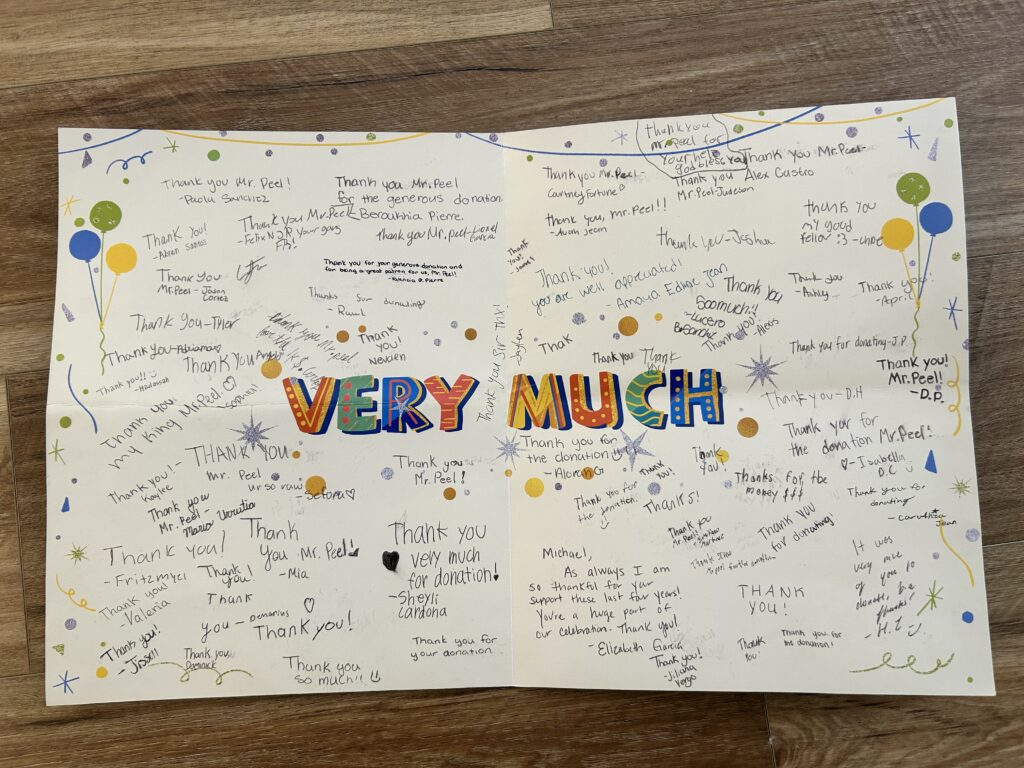 Thank You Mr. Peel!
-Paola Sanchez
Thank you Mr. Peel
for the generous donation
-Beraukhia Pierre.
Thank You!
-Nolen Santos
Thank You Mr. Peel
-Felix N J.P. Your guy
thank you Mr. peel-Lionel
Garcia
Thank You
Mr. Peel - Jason
Cortez
Thank you for your generous donation and
for being a great patron for us, Mr. Peel!
Thanks for donating
- Raul
Thank You-Tyler
Thank you Mr. peel
Thank
You!
Thank You-Adriana
Thank you!!
-Hadassah
Thank You
Angel
Thank you Sir THX!
-Jayden
Thank You,
my King Mr. Peel.
Sophia
thank you
mr. peel for
your help
god bless you
Thank you Mr. Peel-
Courtney Fortune
Thank You Mr. Peel-
Alex Castro
Thank you
Mr. Peel-Judeson
thank you, mr. peel!!
-Avah Jean
Thank
You!
-James
thank you-Joshua
thank you
my good
fellow :3 -
Thank you!
you are well appreciated!
- Amaya Edime Jean
Thank You
Soomuch!!
-Lucero
Thank you
-Ashley
Thank you!
-April
Thank You!
-Alexis
Thak
Thank you
Thank
you
Thank you for donating-J.P.
Thank you!
Mr. Peel!
-D.P.
VERY MUCH
Thank you -D.H
Thank you for
the donation Mr. Peel!
♡-Isabella
D.C
THANK YOU
Mr. Peel
ur so raw
-Setora♡
Thank you
Mr. Peel!
Thank you for
the donation
-Aloran G
Thank
you!
Thank
You!
Thanks for the
money $$$
Thank you for
donating
-Carukhia
Jean
Thank you!-
Kaylee
Thank you
Mr. Peel-
Mario Urrutia
Thank you for
the donation!
THANKS!
Thank you
Mr. Peel-
Thank you
mr peel for the donation
THANK YOU
for donating!
Thank you!
- Fritzmyci
Thank
You Mr. Peel!
-Mia
Thank you
very much
for donation!
-Sheyli
Cardona
Michael,
As always I am
so thankful for your
support these last few years!
You're a huge part of
our celebration. Thank you!
- Elizabeth Garcia
It was
very nice
of you to
donate,
thanks!
H.I.
Thank
You!
Thank you!
-Valeria
Thank
you-Demarius
Thank you!
THANK
YOU!
Thank you!
-Jissell
Thank you
Dominick
Thank you
so much!!
Thank you for
your donation
Thank you!
-Jiliana
Thank
You!
Thank you for
the donation!